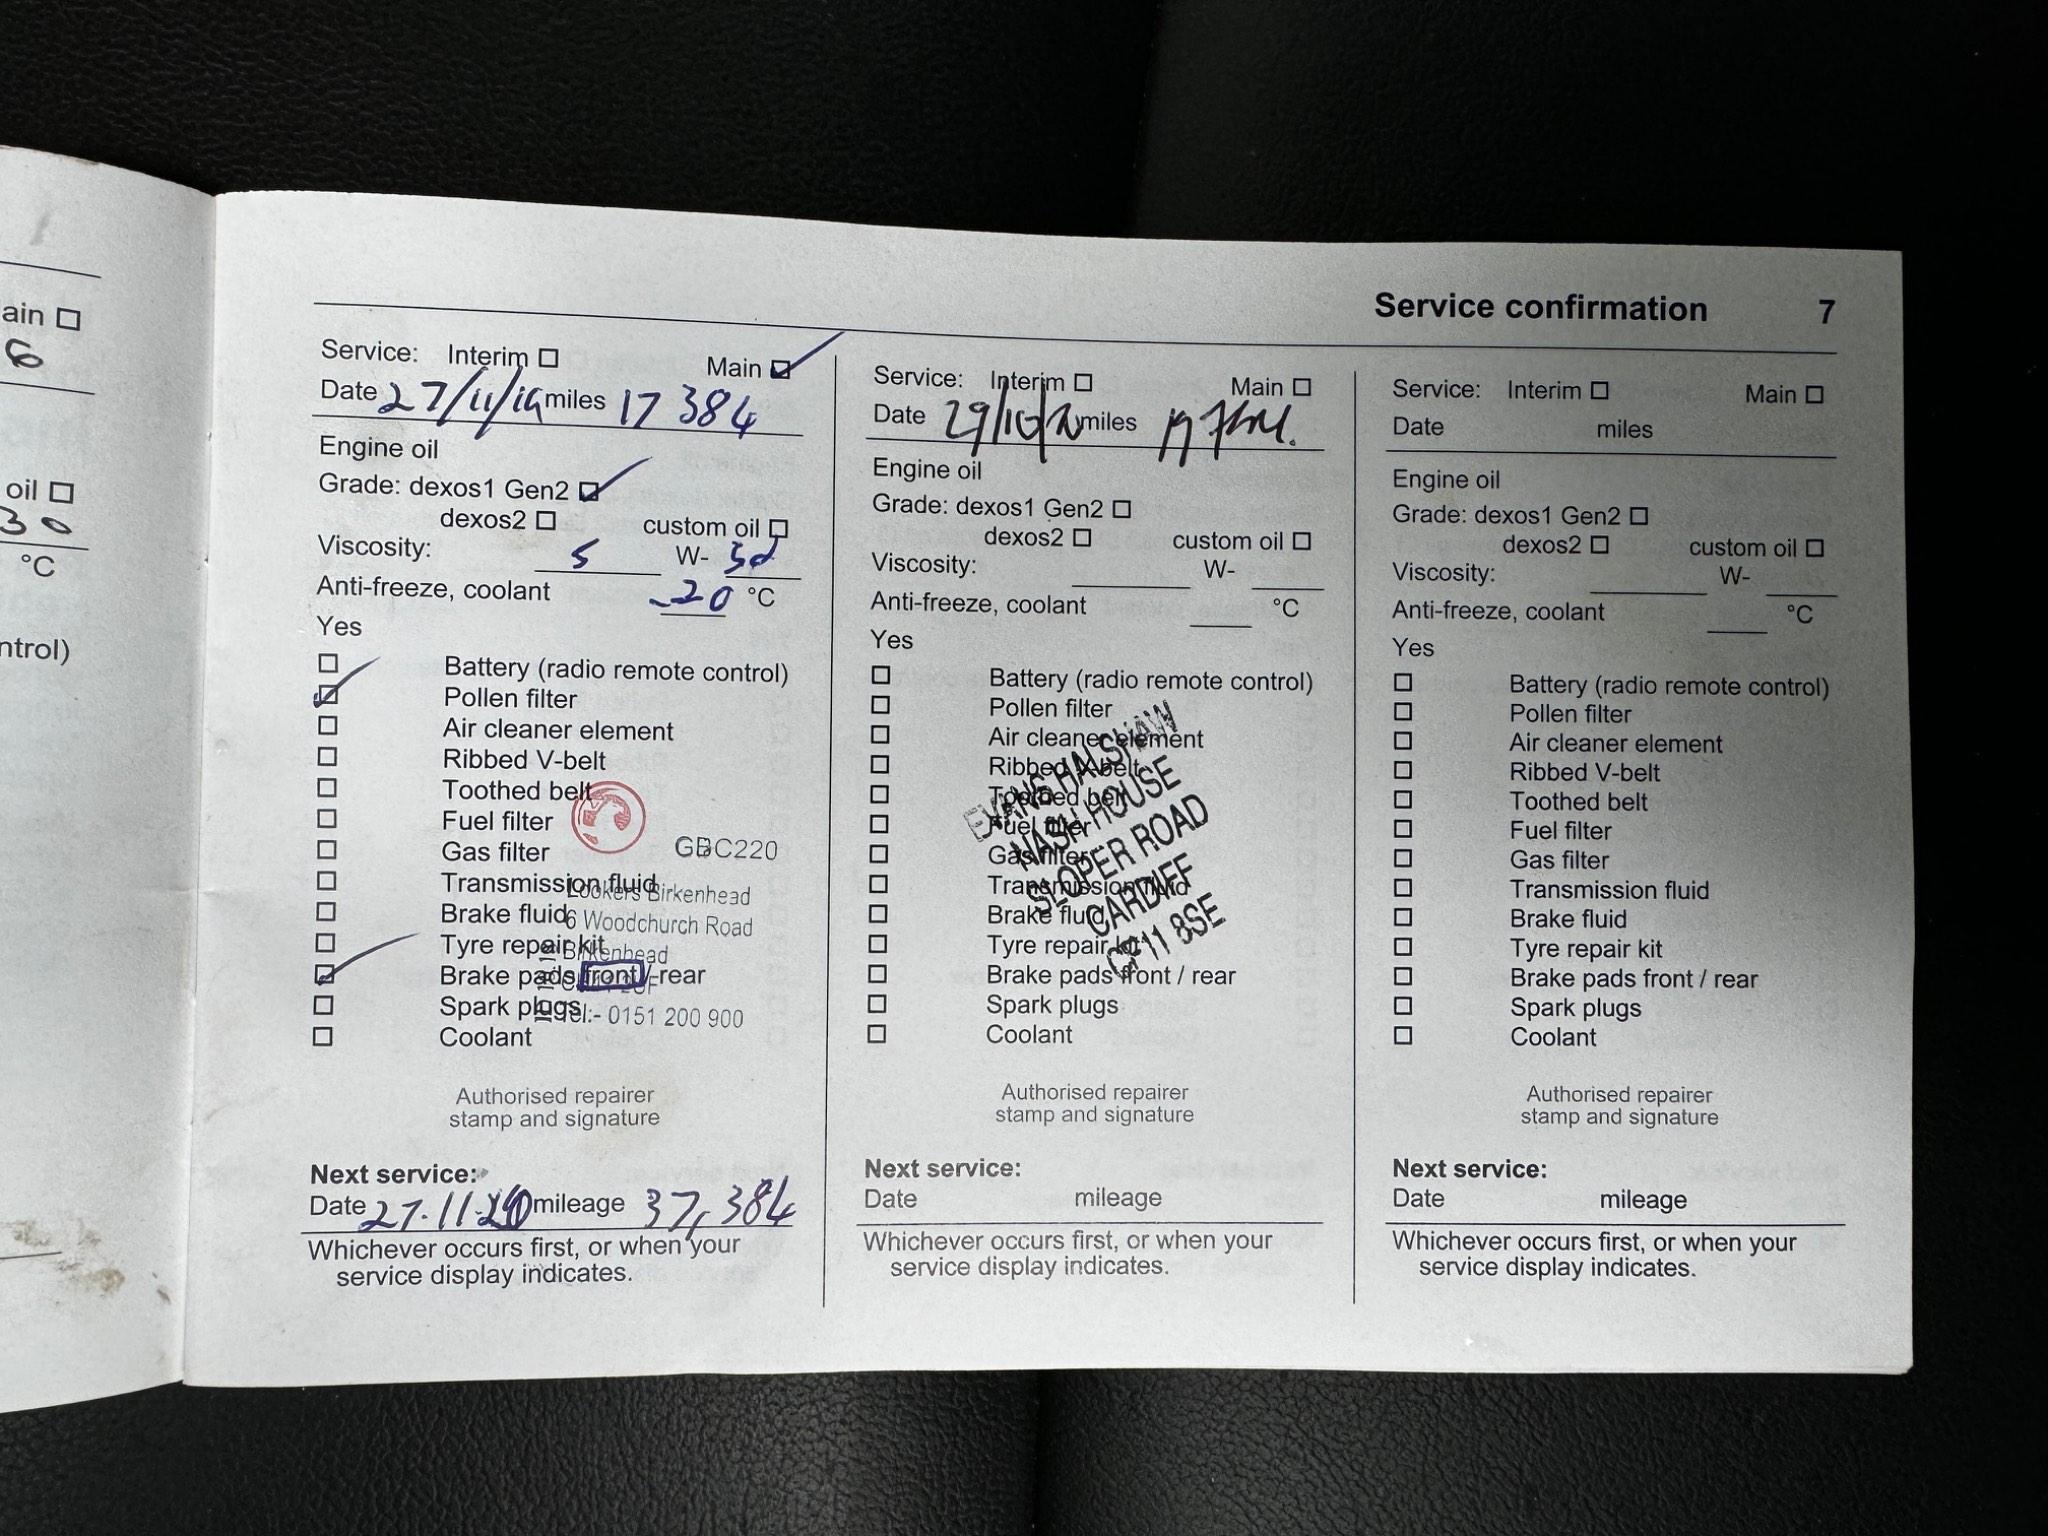 ain ☐
6
oil ☐
30
°C
ntrol)
Service confirmation 7
Service: Interim ☐ Main ☑
Date 27/11/19 miles 17 384
Engine oil
Grade: dexos1 Gen2 ☑
dexos2 ☐ custom oil ☐
Viscosity: 5 W- 30
Anti-freeze, coolant -20 °C
Yes
☐ Battery (radio remote control)
☑ Pollen filter
☐ Air cleaner element
☐ Ribbed V-belt
☐ Toothed belt
☐ Fuel filter
☐ Gas filter
☐ Transmission fluid
☐ Brake fluid
☐ Tyre repair kit
☑ Brake pads front / rear
☐ Spark plugs
☐ Coolant
GBC220
Lookers Birkenhead
6 Woodchurch Road
Birkenhead
Tel:- 0151 200 900
Authorised repairer
stamp and signature
Next service:
Date 27.11.20 mileage 37,384
Whichever occurs first, or when your
service display indicates.
Service: Interim ☐ Main ☐
Date 29/10/ miles
Engine oil
Grade: dexos1 Gen2 ☐
dexos2 ☐ custom oil ☐
Viscosity: W-
Anti-freeze, coolant °C
Yes
☐ Battery (radio remote control)
☐ Pollen filter
☐ Air cleaner element
☐ Ribbed V-belt
☐ Toothed belt
☐ Fuel filter
☐ Gas filter
☐ Transmission fluid
☐ Brake fluid
☐ Tyre repair kit
☐ Brake pads front / rear
☐ Spark plugs
☐ Coolant
EVANS HALSHAW
NASH HOUSE
SLOPER ROAD
CARDIFF
CF11 8SE
Authorised repairer
stamp and signature
Next service:
Date mileage
Whichever occurs first, or when your
service display indicates.
Service: Interim ☐ Main ☐
Date miles
Engine oil
Grade: dexos1 Gen2 ☐
dexos2 ☐ custom oil ☐
Viscosity: W-
Anti-freeze, coolant °C
Yes
☐ Battery (radio remote control)
☐ Pollen filter
☐ Air cleaner element
☐ Ribbed V-belt
☐ Toothed belt
☐ Fuel filter
☐ Gas filter
☐ Transmission fluid
☐ Brake fluid
☐ Tyre repair kit
☐ Brake pads front / rear
☐ Spark plugs
☐ Coolant
Authorised repairer
stamp and signature
Next service:
Date mileage
Whichever occurs first, or when your
service display indicates.